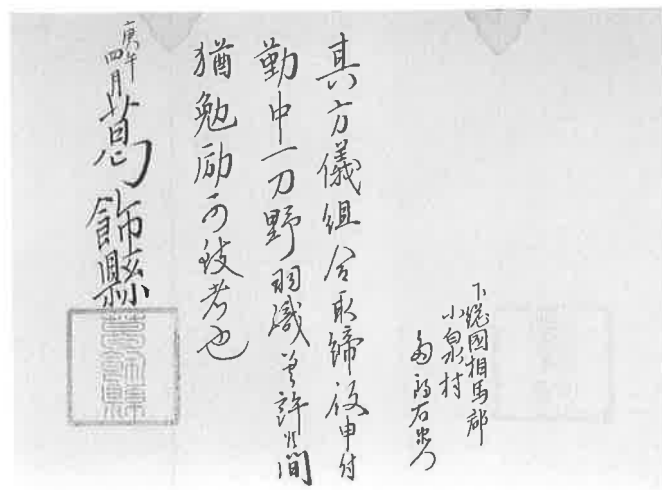 下総国相馬郡
小泉村
其方儀組合取締役申付
勤中一刀野羽織差許候間
猶勉励可致者也
庚午
四月
葛飾縣
葛飾縣